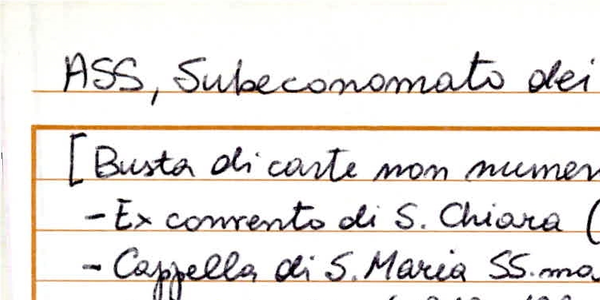 ASS, Subeconomato dei
[Busta di carte non numer
- Ex convento di S. Chiara (
- Cappella di S. Maria SS.ma